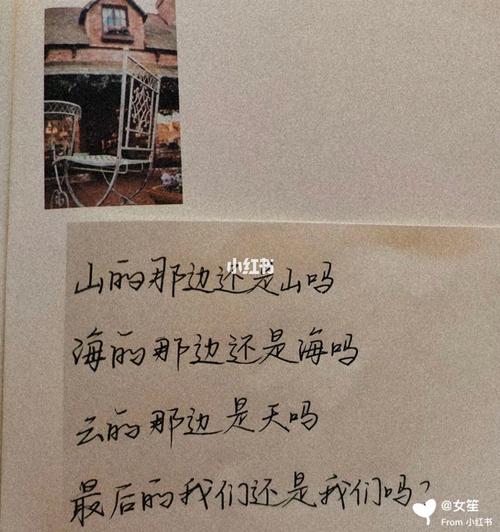 小红书
山的那边还是山吗
海的那边还是海吗
云的那边是天吗
最后的我们还是我们吗?
@女笙
From 小红书